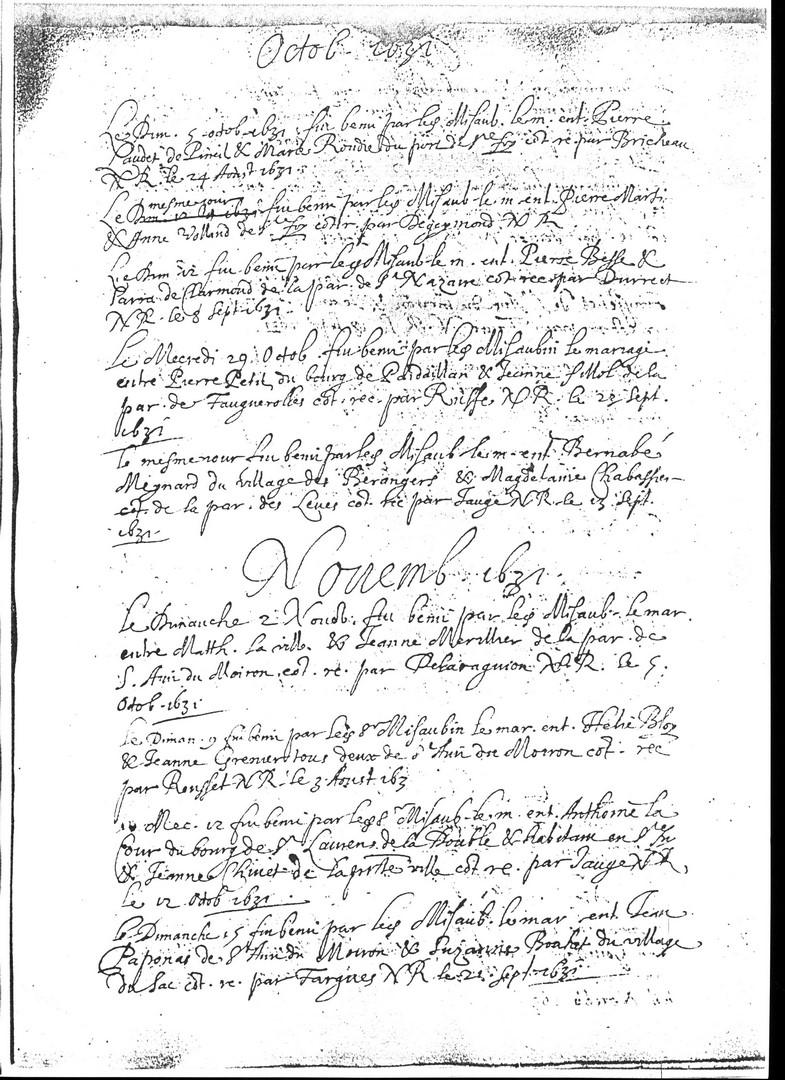 Octob 1631
Le Dim. 5 octob. 1631 fut beni par led Misaub. le m. ent. Pierre
Laudet de Pineil & Marie Rondie du port de Ste Foy cot. re. par Bricheau
N.R. le 24 Aoust 1631.
Le mesme jour fut beni par led Misaub. le m. ent. Pierre Marti
& Anne Volland de Ste Foy cot. r. par Degeymond N.R.
Le Dim 12 fut beni par led Misaub. le m. ent. Pierre Besse &
de la par. de St Nazaire cot. rec. par Durrect
N.R. le 8 Sept 1631.
Le Mecredi 29 Octob. fut beni par led Misaubin le mariage
entre Pierre Petit du bourg de Pardaillan & Jeanne fillol de la
par. de Fauguerolles cot. rec. par Ruffe N.R. le 23 Sept.
1631
Le mesme jour fut beni par led Misaub. le m. ent. Bernabé
Mignard du village des Berangers & Magdelaine Chabassier
de la par. des Leves cot. rec par Jauge N.R. le 13 Sept.
1631.
Novemb. 1631.
Le Dimanche 2 Novob. fut beni par led Misaub. le mar.
entre Matth. la ville & Jeanne Merillier de la par. de
S. Avit du Moiron cot. re. par N.R. le 5.
Octob. 1631
Le Diman. 9 fut beni par led Sr Misaubin le mar. ent. Helie Bloy
& Jeanne Grenier tous deux de St Avit du Moiron cot. rec
par Rousset N.R. le 3 Aoust 163
Mec. 12 fut beni par led Sr Misaub. le m. ent. Anthoine la
Cour du bourg de St Laurens de la Double & habitant en Ste Fo
& Jeanne Chinet de la pnte ville cot. re. par Jauge N.R.
le 12 Octob 1631.
Le Dimanche 15 fut beni par led Misaub. le mar ent Jean
Paponas de St Avit du Moiron & Suzanne du village
du Sac cot. re. par Fargues N.R. le 21 Sept. 1631